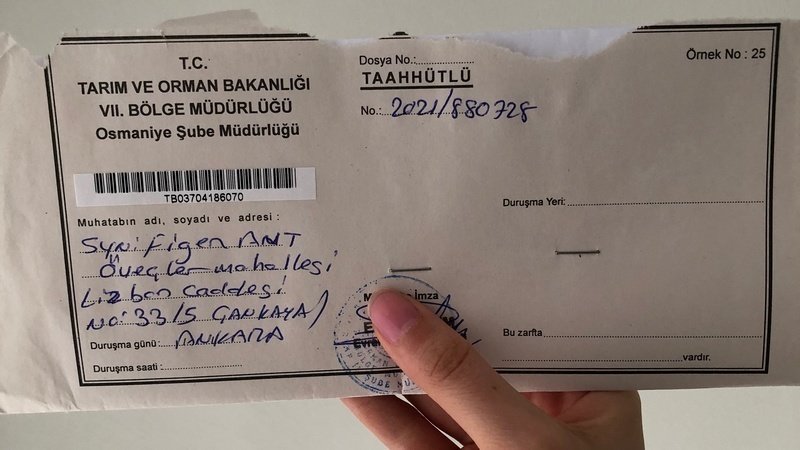 T.C.
TARIM VE ORMAN BAKANLIĞI
VII. BÖLGE MÜDÜRLÜĞÜ
Osmaniye Şube Müdürlüğü
TB03704186070
Muhatabın adı, soyadı ve adresi :
Syn: Figen ANT
Öveçler mahallesi
Lizbon Caddesi
NO: 33/5 ÇANKAYA/
ANKARA
Duruşma günü:
Duruşma saati :
Dosya No.:
TAAHHÜTLÜ
No.: 2021/880728
İmza
Örnek No : 25
Duruşma Yeri:
Bu zarfta
vardır.